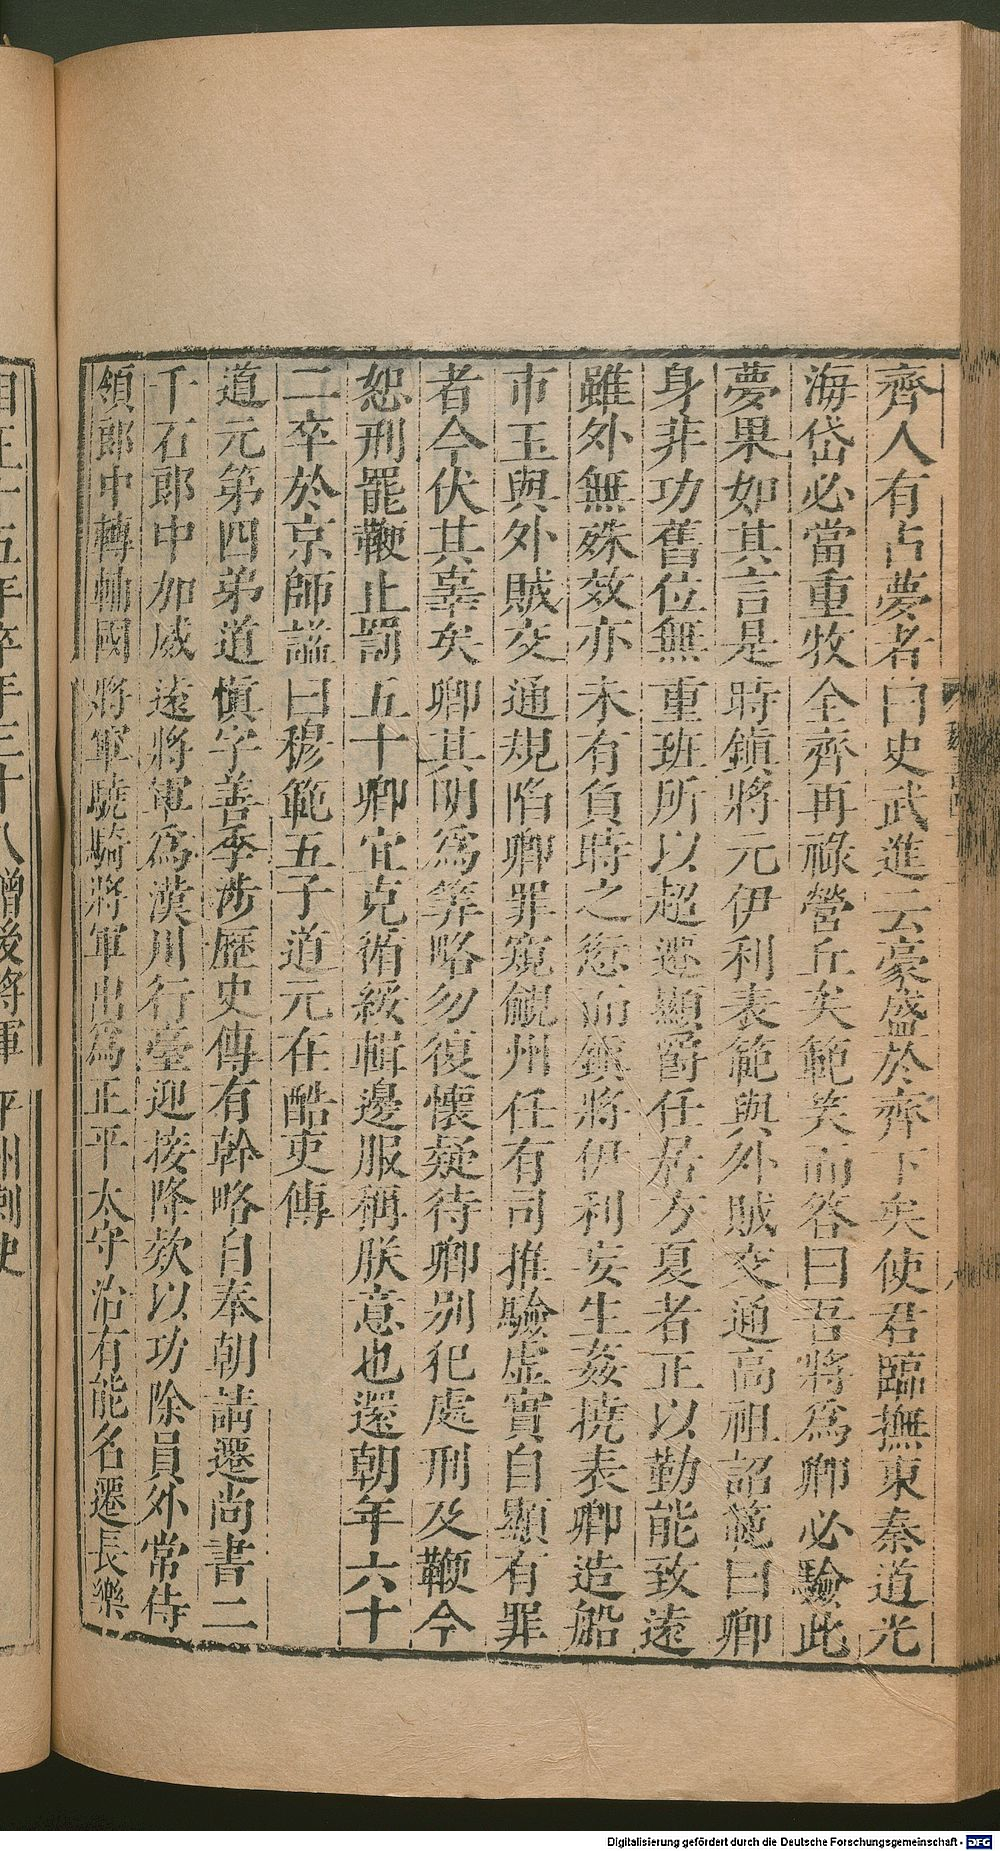 齊人有占夢者曰史武進云豪盛於齊下矣使君臨撫東秦道光
海岱必當重牧全齊再祿營丘矣範笑而答曰吾將爲卿必驗此
夢果如其言是時鎮將元伊利表範與外賊交通高祖詔範曰卿
身非功舊位無重班所以超遷顯爵任居方夏者正以勤能致遠
雖外無殊效亦未有負時之愆而鎮將伊利妄生姦撓表卿造船
市玉與外賊交通規陷卿罪窺覦州任有司推驗虛實自顯有罪
者今伏其辜矣卿其明爲筭略勿復懷疑待卿別犯處刑及鞭今
恕刑罷鞭止罰五十卿宜克循綏輯邊服稱朕意也還朝年六十
二卒於京師謚曰穆範五子道元在酷吏傳
道元第四弟道慎字善季涉歷史傳有幹略自奉朝請遷尚書二
千石郎中加威遠將軍爲漢川行臺迎接降欵以功除員外常侍
領郎中轉輔國將軍驍騎將軍出爲正平太守治有能名遷長樂
相正十五年卒年三十八贈後將軍平州刺史
Digitalisierung gefördert durch die Deutsche Forschungsgemeinschaft - DFG